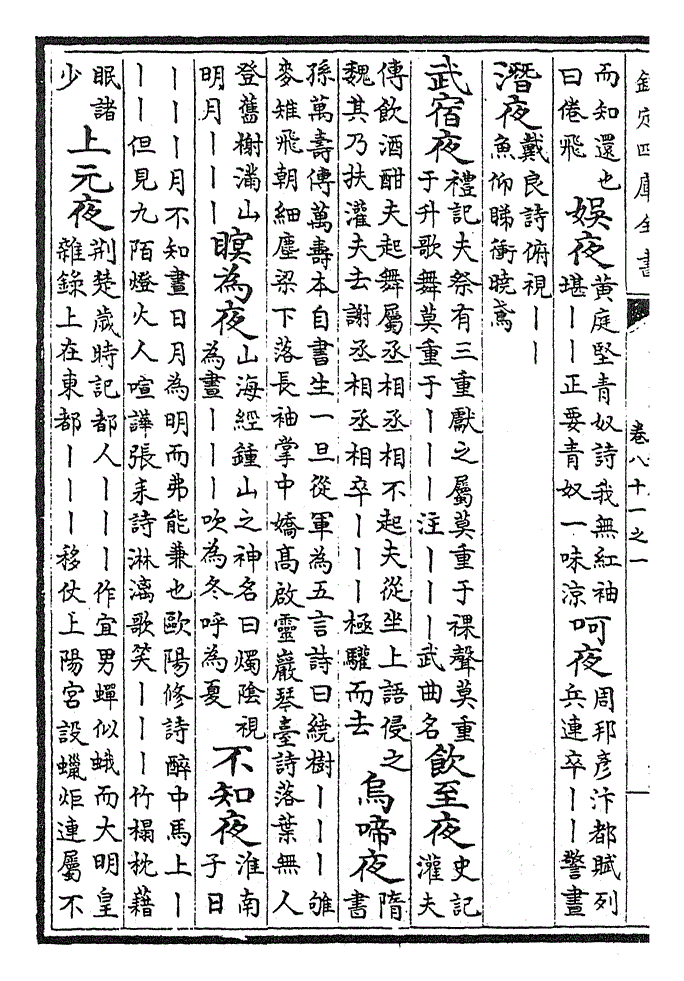 欽定四庫全書
卷八十一之一
而知還也
曰倦飛
娛夜
黃庭堅青奴詩我無紅袖
堪丨丨正要青奴一味涼
呵夜
周邦彥汴都賦列
兵連卒丨丨警晝
潛夜
戴良詩俯視丨丨
魚仰睇衝曉鳶
武宿夜
禮記夫祭有三重獻之屬莫重于祼聲莫重
于升歌舞莫重于丨丨丨注丨丨丨武曲名
飲至夜
史記
灌夫
傳飲酒酣夫起舞屬丞相丞相不起夫從坐上語侵之
魏其乃扶灌夫去謝丞相丞相卒丨丨丨極驩而去
烏啼夜
隋
書
孫萬壽傳萬壽本自書生一旦從軍為五言詩曰繞樹丨丨丨雊
麥雉飛朝細塵梁下落長袖掌中嬌高啟靈巖琴臺詩落葉無人
登舊榭滿山
明月丨丨丨
瞑為夜
山海經鍾山之神名曰燭陰視
為晝丨丨丨吹為冬呼為夏
不知夜
淮南
子日
丨丨丨月不知晝日月為明而弗能兼也歐陽修詩醉中馬上丨
丨丨但見九陌燈火人喧譁張耒詩淋漓歌笑丨丨丨竹榻枕藉
眠諸
少
上元夜
荆楚歲時記都人丨丨丨作宜男蟬似蛾而大明皇
雜錄上在東都丨丨丨移仗上陽宮設蠟炬連屬不